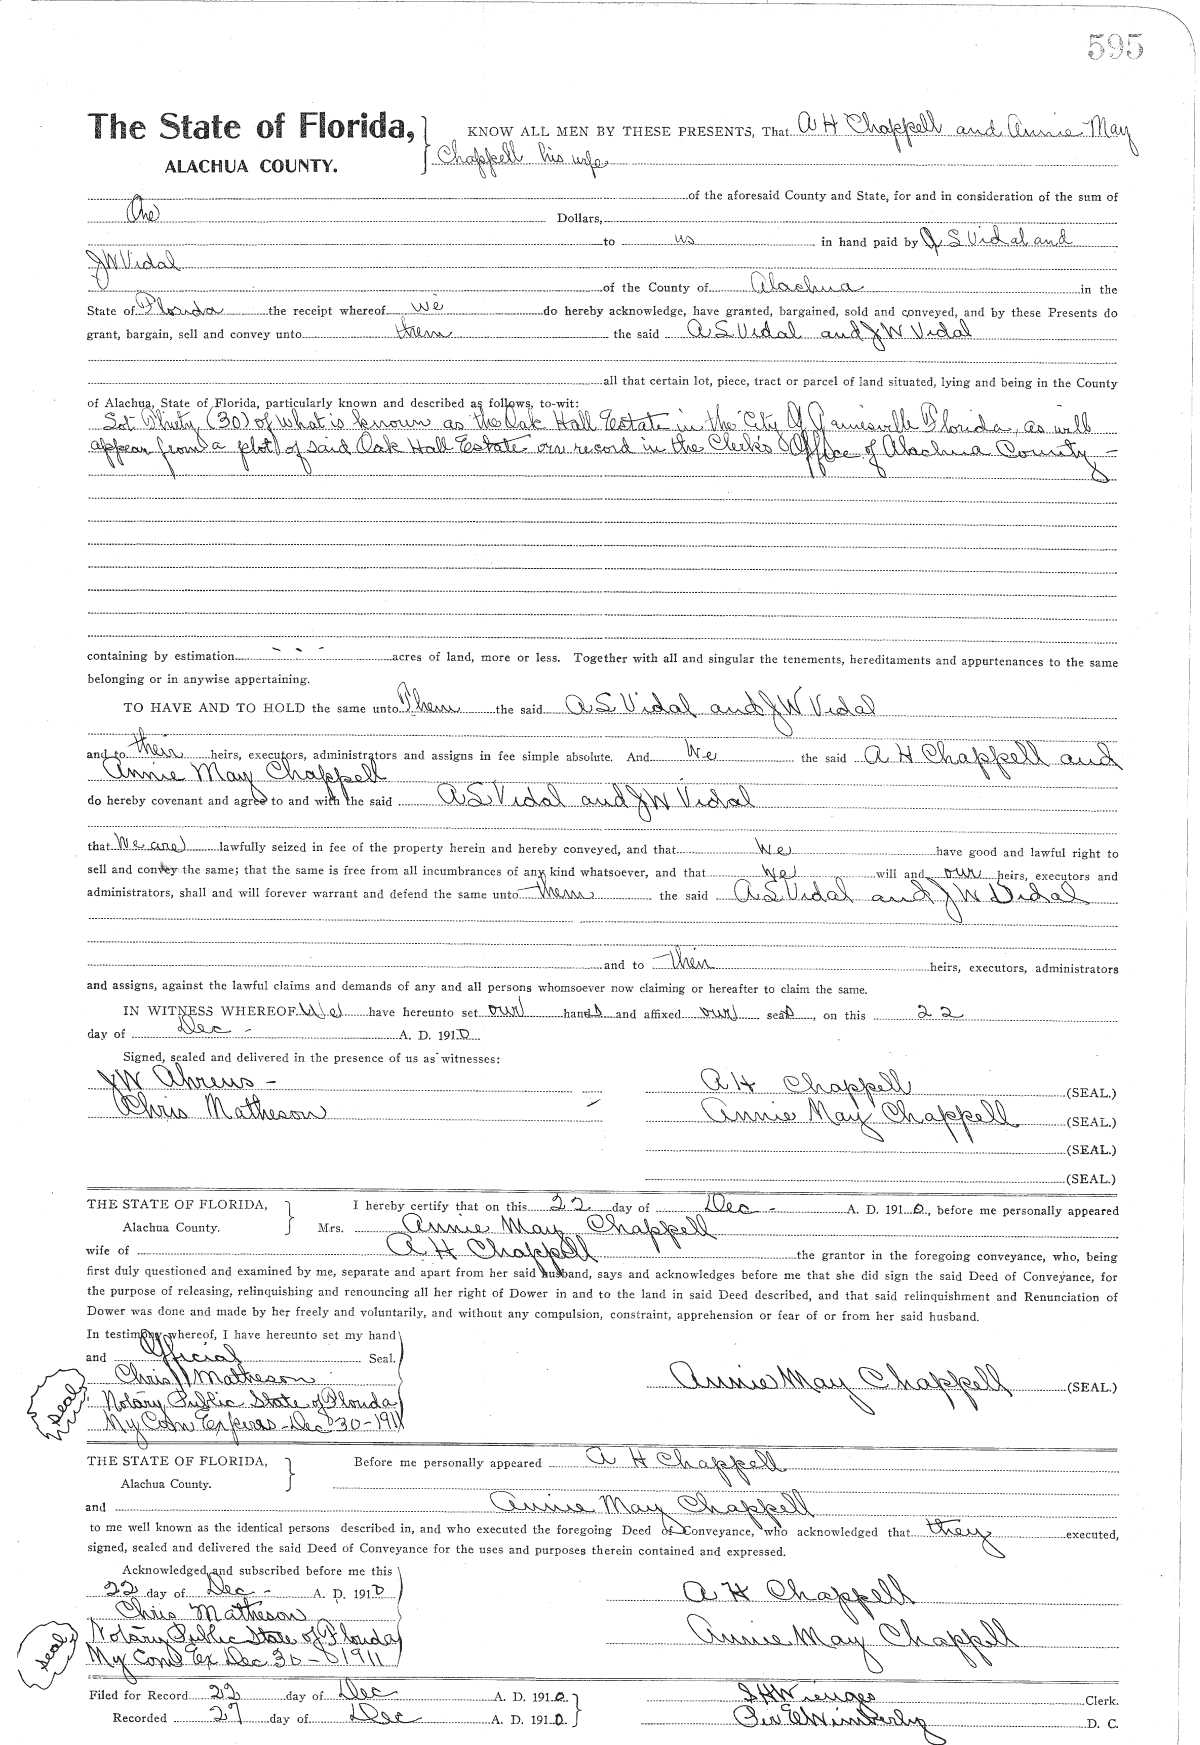 595
The State of Florida, KNOW ALL MEN BY THESE PRESENTS, That A H Chappell and Annie May
ALACHUA COUNTY. Chappell his wife
of the aforesaid County and State, for and in consideration of the sum of
One Dollars,
to us in hand paid by A S Vidal and
J W Vidal
of the County of Alachua in the
State of Florida the receipt whereof we do hereby acknowledge, have granted, bargained, sold and conveyed, and by these Presents do
grant, bargain, sell and convey unto them the said A S Vidal and J W Vidal
all that certain lot, piece, tract or parcel of land situated, lying and being in the County
of Alachua, State of Florida, particularly known and described as follows, to-wit:
Lot Thirty (30) of what is known as the Oak Hall Estate in the City Of Gainesville Florida, as will
appear from a plot of said Oak Hall Estate on record in the Clerk's Office of Alachua County -
containing by estimation - - - acres of land, more or less. Together with all and singular the tenements, hereditaments and appurtenances to the same
belonging or in anywise appertaining.
TO HAVE AND TO HOLD the same unto Them the said A S Vidal and J W Vidal
and to their heirs, executors, administrators and assigns in fee simple absolute. And We the said A H Chappell and
Annie May Chappell
do hereby covenant and agree to and with the said A S Vidal and J W Vidal
that We are lawfully seized in fee of the property herein and hereby conveyed, and that We have good and lawful right to
sell and convey the same; that the same is free from all incumbrances of any kind whatsoever, and that we will and our heirs, executors and
administrators, shall and will forever warrant and defend the same unto them the said A S Vidal and J W Vidal
and to their heirs, executors, administrators
and assigns, against the lawful claims and demands of any and all persons whomsoever now claiming or hereafter to claim the same.
IN WITNESS WHEREOF We have hereunto set our hands and affixed our seals, on this 22
day of Dec - A. D. 1910
Signed, sealed and delivered in the presence of us as witnesses:
J W Ahrens - A H Chappell (SEAL.)
Chris Matheson Annie May Chappell (SEAL.)
(SEAL.)
(SEAL.)
THE STATE OF FLORIDA, I hereby certify that on this 22 day of Dec - A. D. 1910, before me personally appeared
Alachua County. Mrs. Annie May Chappell
wife of A H Chappell the grantor in the foregoing conveyance, who, being
first duly questioned and examined by me, separate and apart from her said husband, says and acknowledges before me that she did sign the said Deed of Conveyance, for
the purpose of releasing, relinquishing and renouncing all her right of Dower in and to the land in said Deed described, and that said relinquishment and Renunciation of
Dower was done and made by her freely and voluntarily, and without any compulsion, constraint, apprehension or fear of or from her said husband.
In testimony whereof, I have hereunto set my hand
and Official Seal.
Chris Matheson Annie May Chappell (SEAL.)
Seal Notary Public State of Florida
My Com Expires - Dec 30 - 1911
THE STATE OF FLORIDA, Before me personally appeared A H Chappell
Alachua County.
and Annie May Chappell
to me well known as the identical persons described in, and who executed the foregoing Deed of Conveyance, who acknowledged that they executed,
signed, sealed and delivered the said Deed of Conveyance for the uses and purposes therein contained and expressed.
Acknowledged and subscribed before me this
22 day of Dec - A. D. 1910 A H Chappell
Chris Matheson
Seal Notary Public State of Florida Annie May Chappell
My Com Ex Dec 30 - 1911
Filed for Record 22 day of Dec A. D. 1910 S H Wienges Clerk.
Recorded 27 day of Dec A. D. 1910. Per E Wimberly D. C.